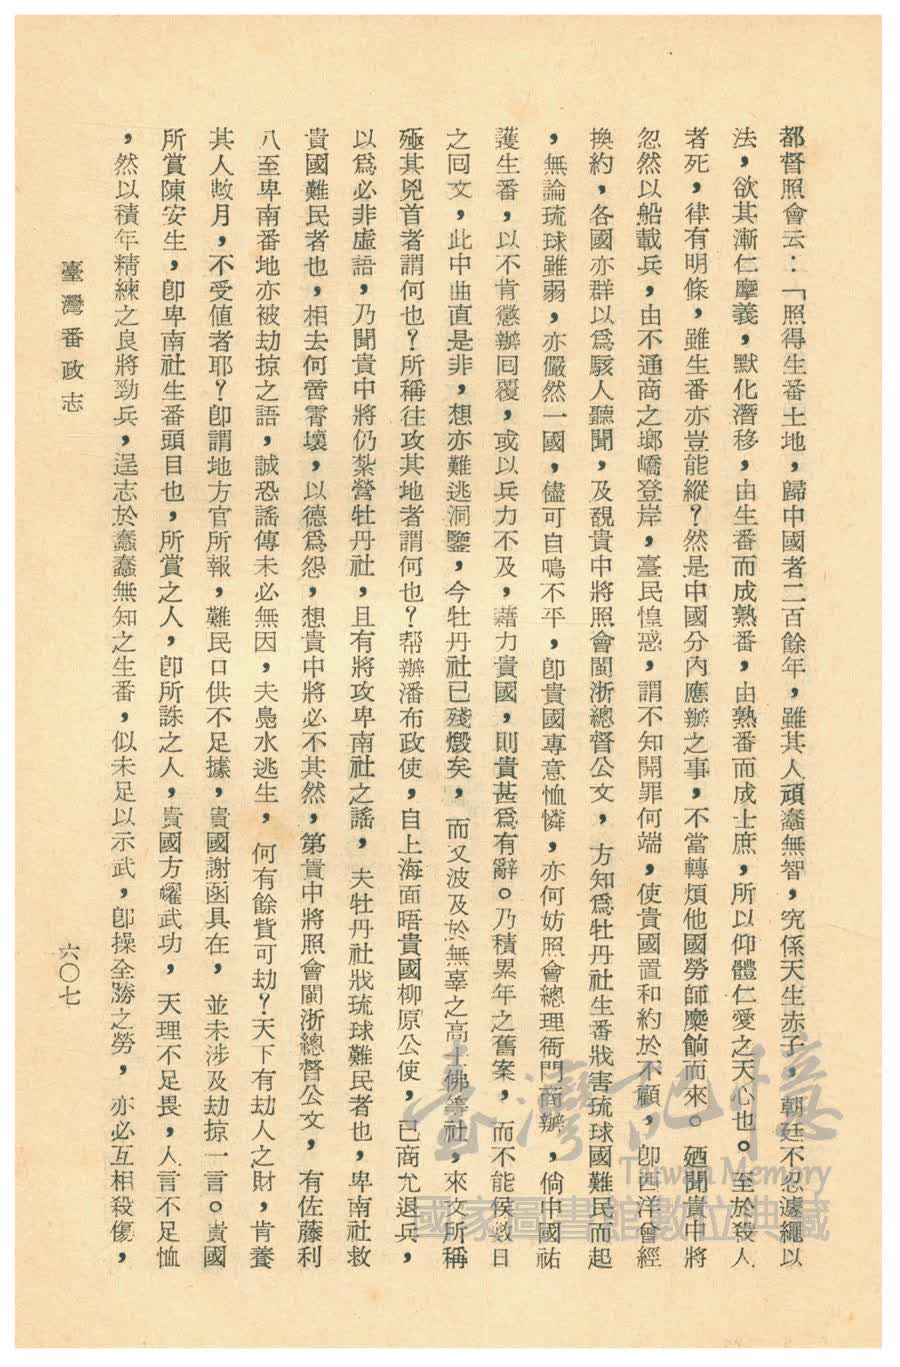 都督照會云：「照得生番土地，歸中國者二百餘年，雖其人頑蠢無智，究係天生赤子，朝廷不忍遽繩以
法，欲其漸仁摩義，默化潛移，由生番而成熟番，由熟番而成士庶，所以仰體仁愛之天心也。至於殺人
者死，律有明條，雖生番亦豈能縱？然是中國分內應辦之事，不當轉煩他國勞師糜餉而來。廼聞貴中將
忽然以船載兵，由不通商之瑯嶠登岸，臺民惶惑，謂不知開罪何端，使貴國置和約於不顧，卽西洋會經
換約，各國亦群以爲駭人聽聞，及覩貴中將照會閩浙總督公文，方知爲牡丹社生番戕害琉球國難民而起
，無論琉球雖弱，亦儼然一國，儘可自鳴不平，卽貴國專意恤憐，亦何妨照會總理衙門商辦，倘中國祐
護生番，以不肯懲辦囘覆，或以兵力不及，藉力貴國，則貴甚爲有辭。乃積累年之舊案，而不能俟數日
之囘文，此中曲直是非，想亦難逃洞鑒，今牡丹社已殘燬矣，而又波及於無辜之高士佛等社，來文所稱
殛其兇首者謂何也？所稱往攻其地者謂何也？帮辦潘布政使，自上海面晤貴國柳原公使，已商允退兵，
以爲必非虛語，乃聞貴中將仍紮營牡丹社，且有將攻卑南社之謠，夫牡丹社戕琉球難民者也，卑南社救
貴國難民者也，相去何啻霄壤，以德爲怨，想貴中將必不其然，第貴中將照會閩浙總督公文，有佐藤利
八至卑南番地亦被劫掠之語，誠恐謠傳未必無因，夫鳧水逃生，何有餘貲可劫？天下有劫人之財，肯養
其人數月，不受値者耶？卽謂地方官所報，難民口供不足據，貴國謝函具在，並未涉及劫掠一言。貴國
所賞陳安生，卽卑南社生番頭目也，所賞之人，卽所誅之人，貴國方耀武功，天理不足畏，人言不足恤
，然以積年精練之良將勁兵，逞志於蠢蠢無知之生番，似未足以示武，卽操全勝之勞，亦必互相殺傷，
臺灣番政志
六〇七
臺灣記憶
Taiwan Memory
國家圖書館數位典藏